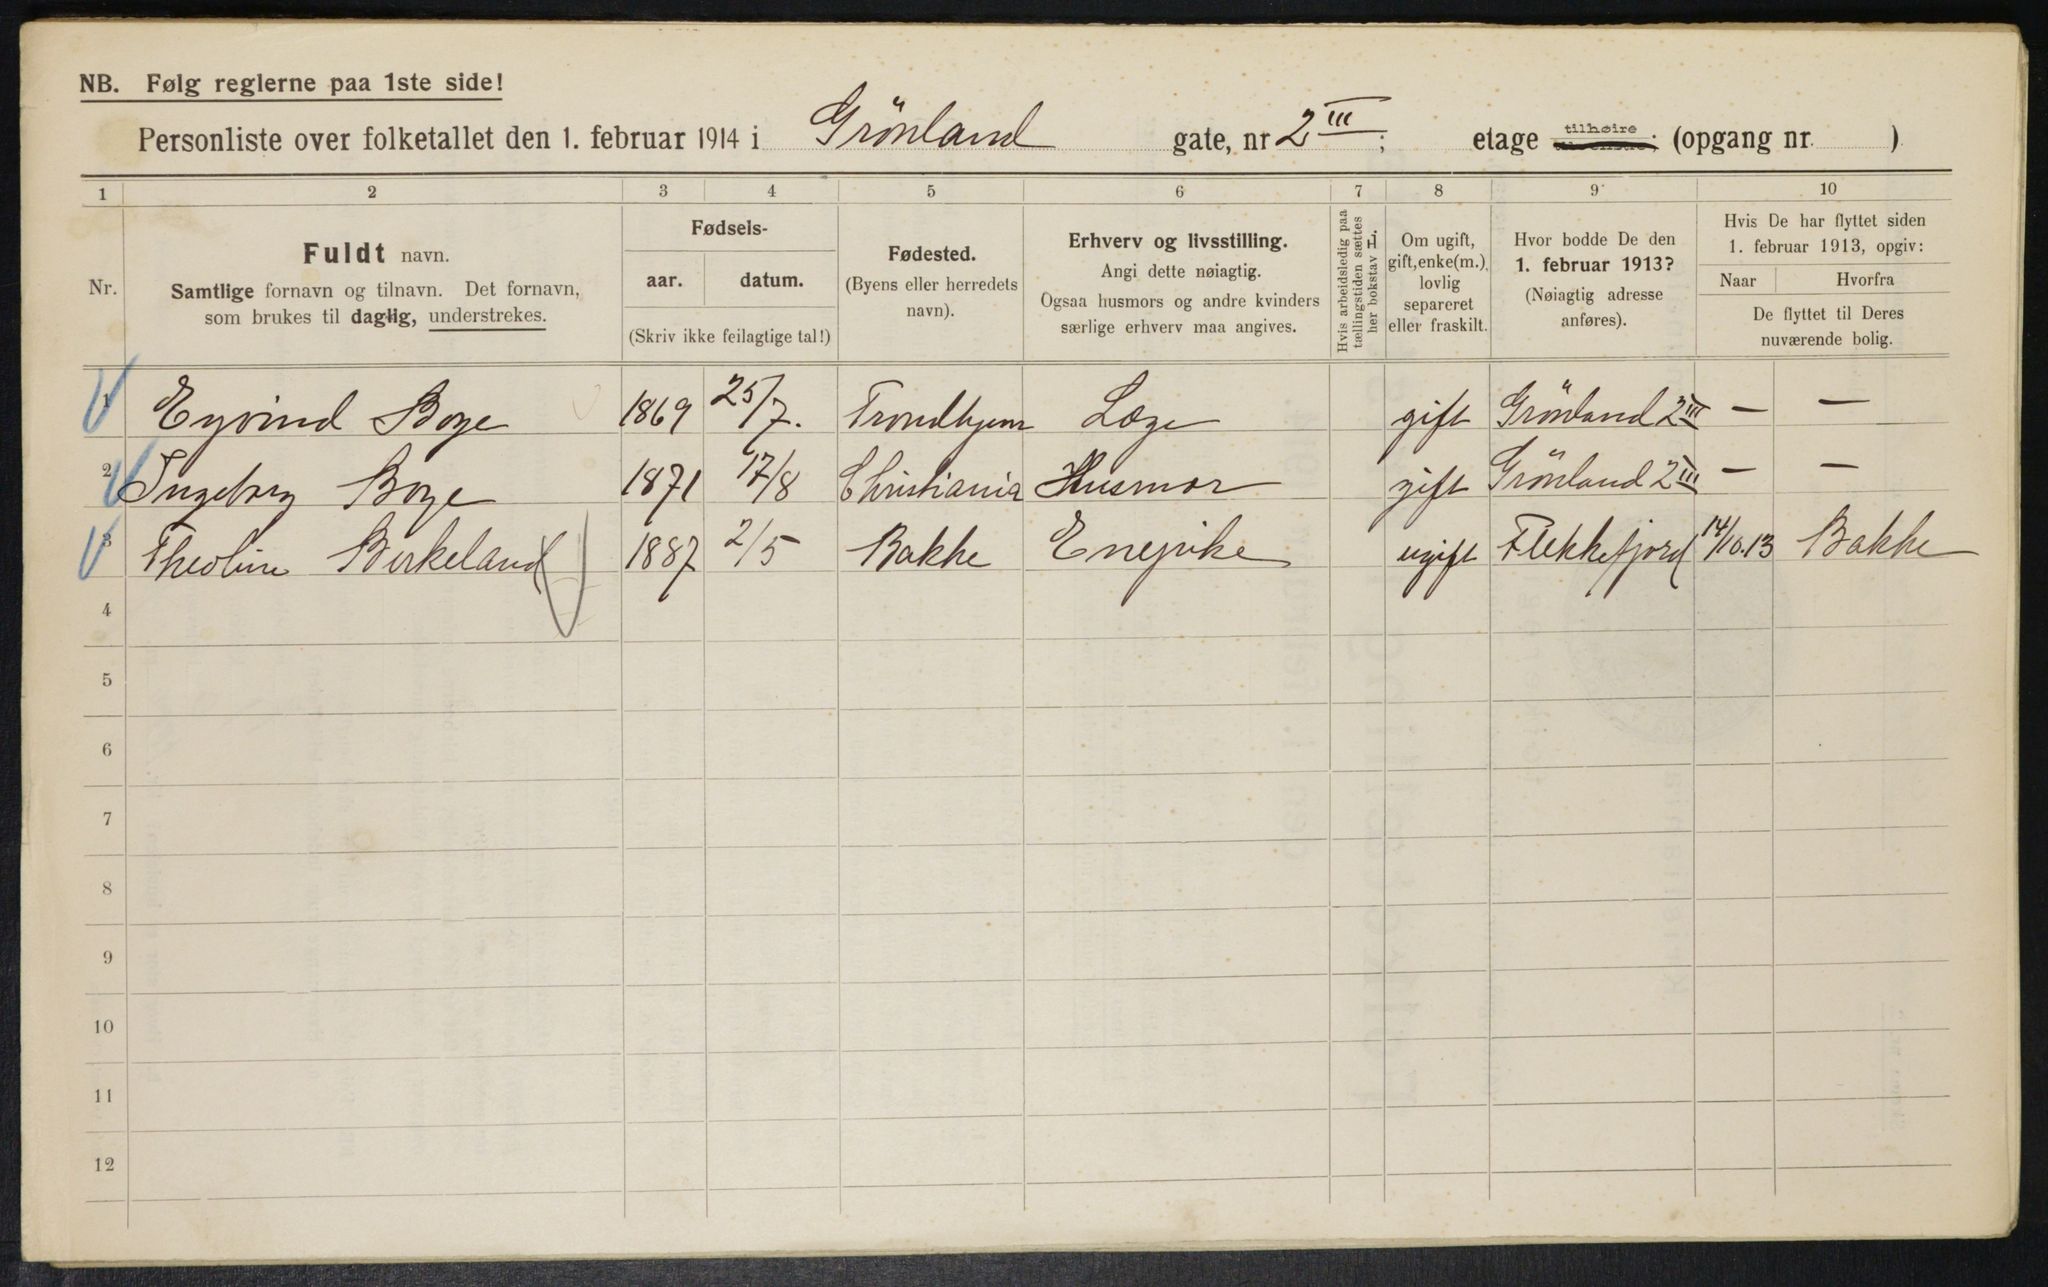 NB. Følg reglerne paa 1ste side!
Personliste over folketallet den 1. februar 1914 i Grönland gate, nr 2 III; etage tilhøire (opgang nr. )
1 2 3 4 5 6 7 8 9 10
Nr.
Fuldt navn.
Samtlige fornavn og tilnavn. Det fornavn,
som brukes til daglig, understrekes.
Fødsels-
aar. datum.
(Skriv ikke feilagtige tal!)
Fødested.
(Byens eller herredets
navn).
Erhverv og livsstilling.
Angi dette nøiagtig.
Ogsaa husmors og andre kvinders
særlige erhverv maa angives.
Hvis arbeidsledig paa
tællingstiden sættes
her bokstav L.
Om ugift,
gift, enke(m.),
lovlig
separeret
eller fraskilt.
Hvor bodde De den
1. februar 1913?
(Nøiagtig adresse
anføres).
Hvis De har flyttet siden
1. februar 1913, opgiv:
Naar Hvorfra
De flyttet til Deres
nuværende bolig.
1 Eyvind Boye 1869 25/7. Trondhjem Læge gift Grönland 2 III — —
2 Ingeborg Boye 1871 17/8 Christiania Husmor gift Grönland 2 III — —
3 Theoline Birkeland 1887 2/5 Bakke Enepike ugift Flekkefjord 14/10.13 Bakke
4
5
6
7
8
9
10
11
12